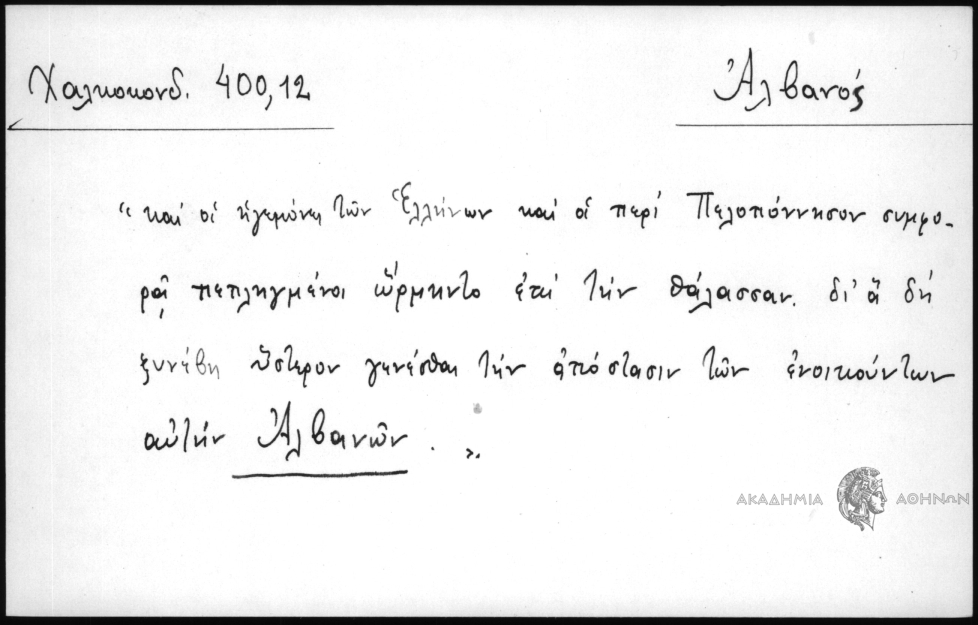 Χαλκοκονδ. 400,12
Ἀλβανός
"καὶ οἱ ἡγεμόνες τῶν Ἑλλήνων καὶ οἱ περὶ Πελοπόννησον συμφο-
ρᾷ πεπληγμένοι ὥρμηντο ἐπὶ τὴν θάλασσαν. δι' ἃ δὴ
ξυνέβη ὕστερον γενέσθαι τὴν ἀπόστασιν τῶν ἐνοικούντων
αὐτὴν Ἀλβανῶν. ".
ΑΚΑΔΗΜΙΑ ΑΘΗΝΩΝ